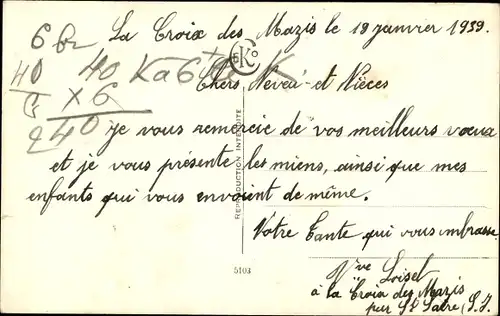 La Croix des Mazis le 18 janvier 1939.
6 Br
40 40 Ka6
Chers Neveu et Nièces
x 6
240
Je vous remercie de vos meilleurs vœux
et je vous présente les miens, ainsi que mes
enfants qui vous envoient de même.
Votre Tante qui vous embrasse
Vve Loisel
à la Croix des Mazis
par St
REPRODUCTION INTERDITE
5103